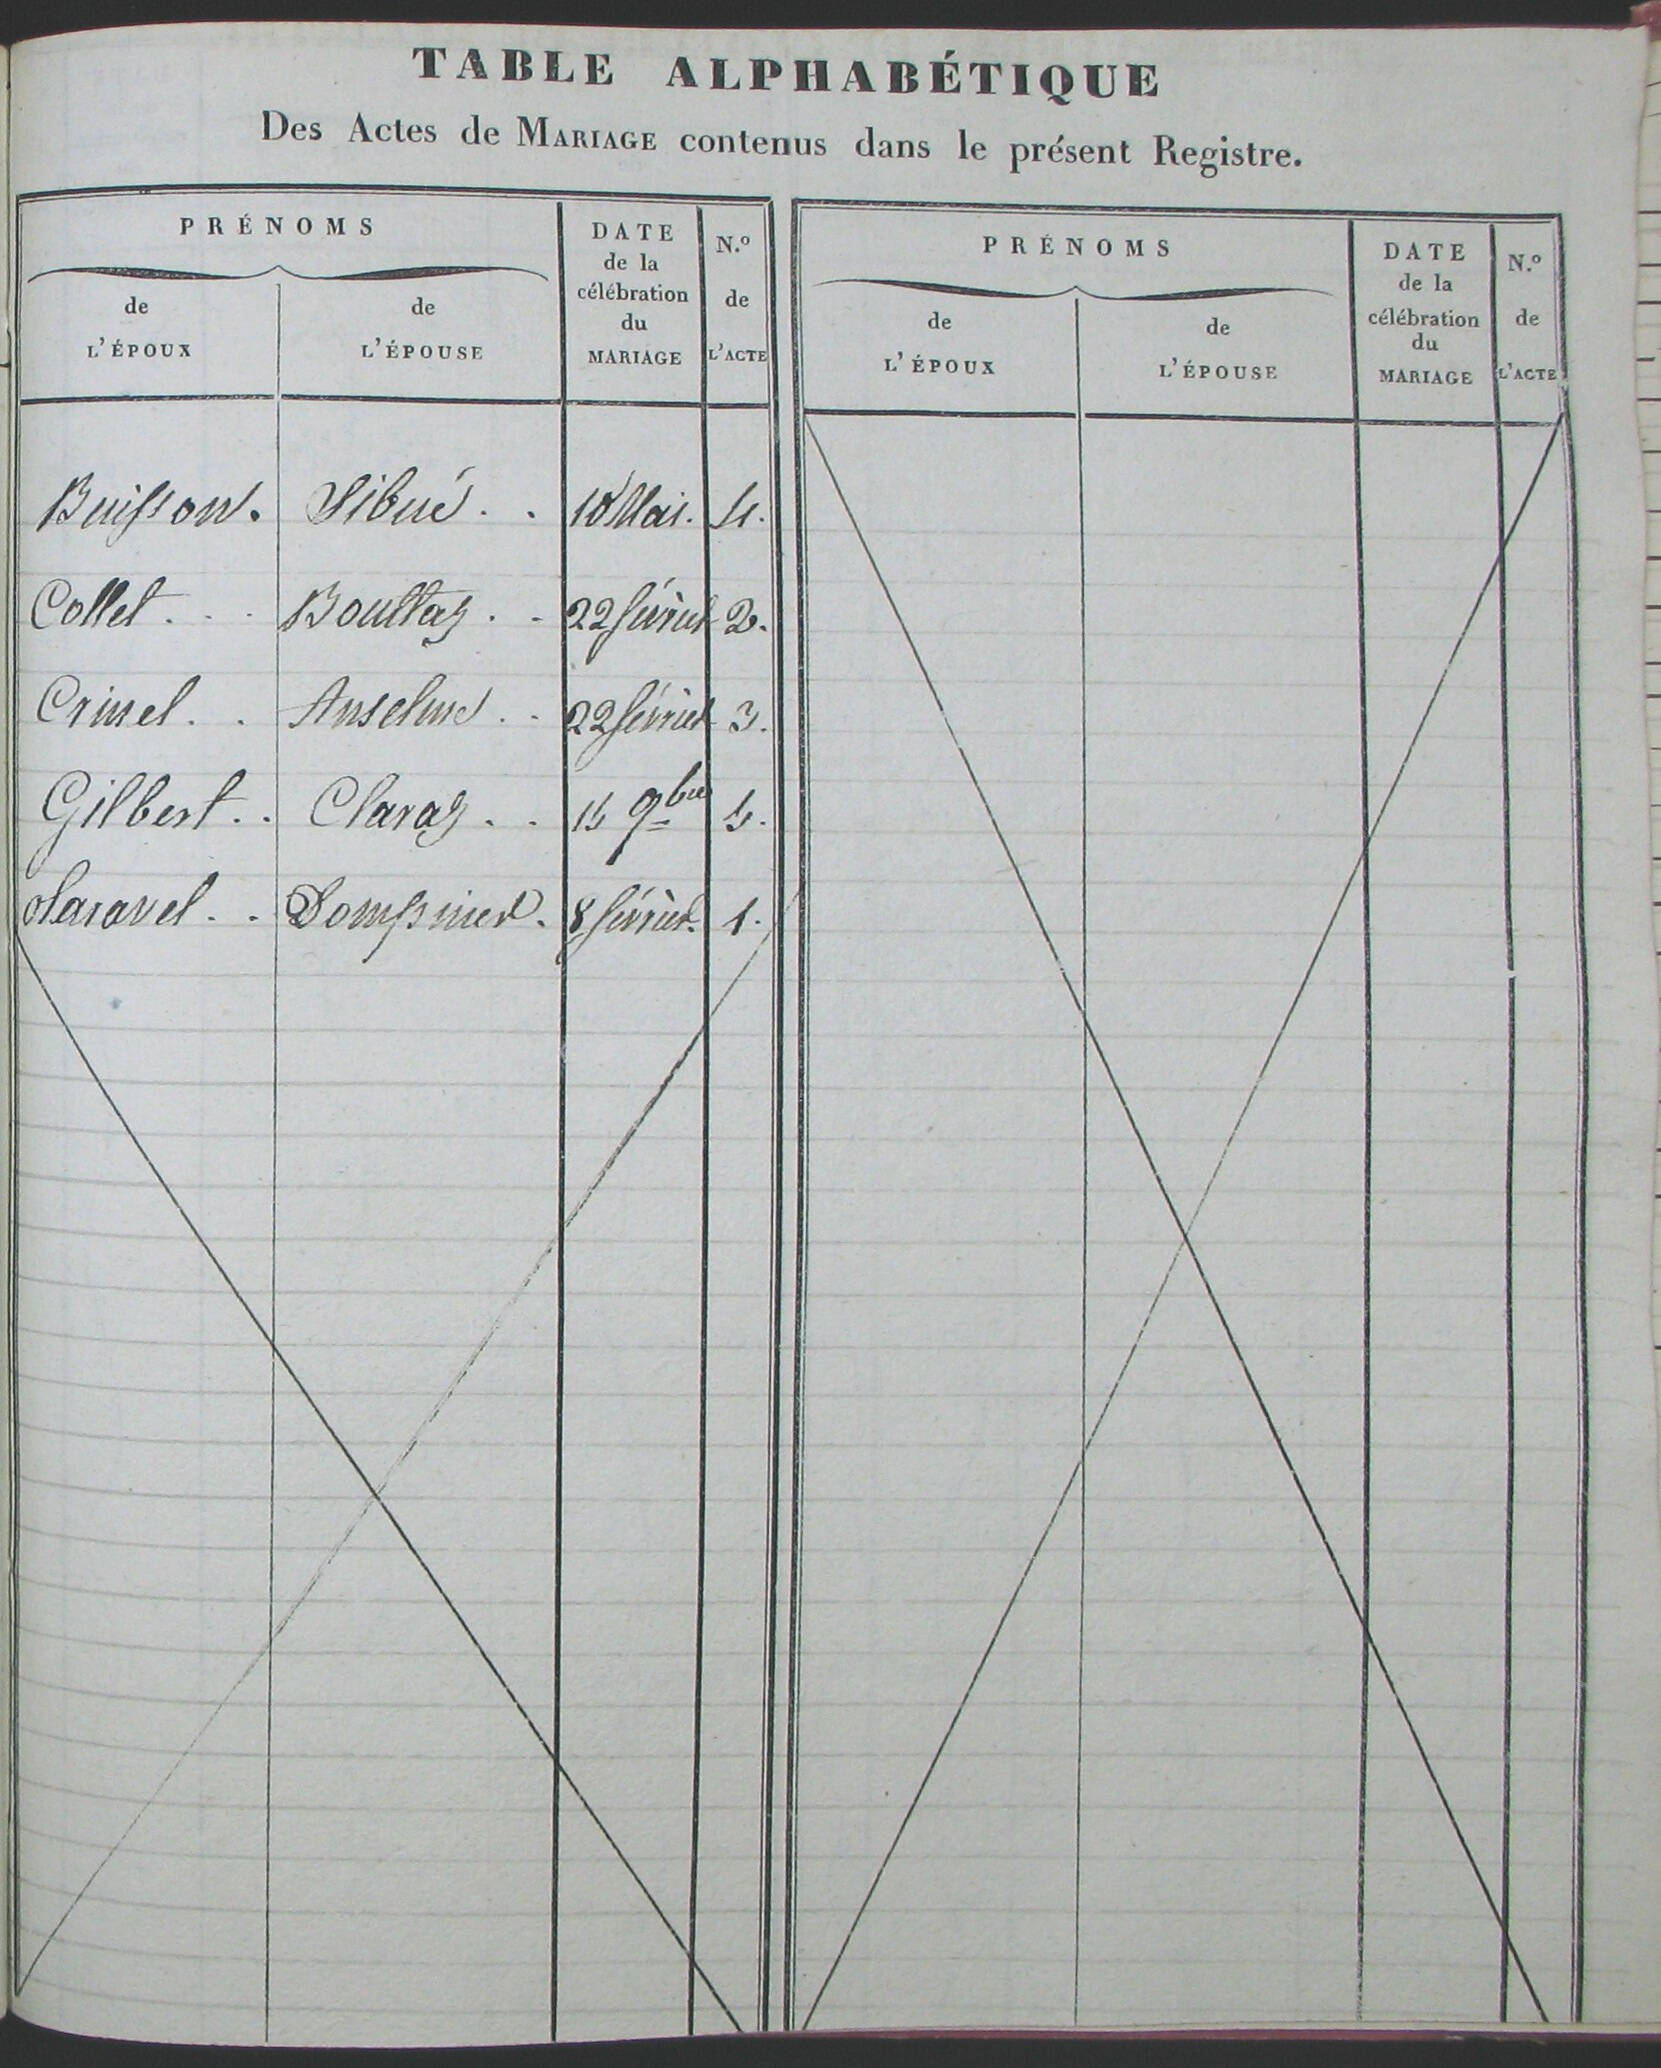 TABLE ALPHABÉTIQUE
Des Actes de MARIAGE contenus dans le présent Registre.
PRÉNOMS
de L'ÉPOUX
de L'ÉPOUSE
DATE de la célébration du MARIAGE
N.º de L'ACTE
Buisson. Sibué . . 10 Mai. 4.
Collet . . . Bouttaz . . 22 février 2.
Crinel . . Anselme . . 22 février 3.
Gilbert . . Claraz . . 9bre 5.
Dompnier. 8 février. 1.
PRÉNOMS
de L'ÉPOUX
de L'ÉPOUSE
DATE de la célébration du MARIAGE
N.º de L'ACTE